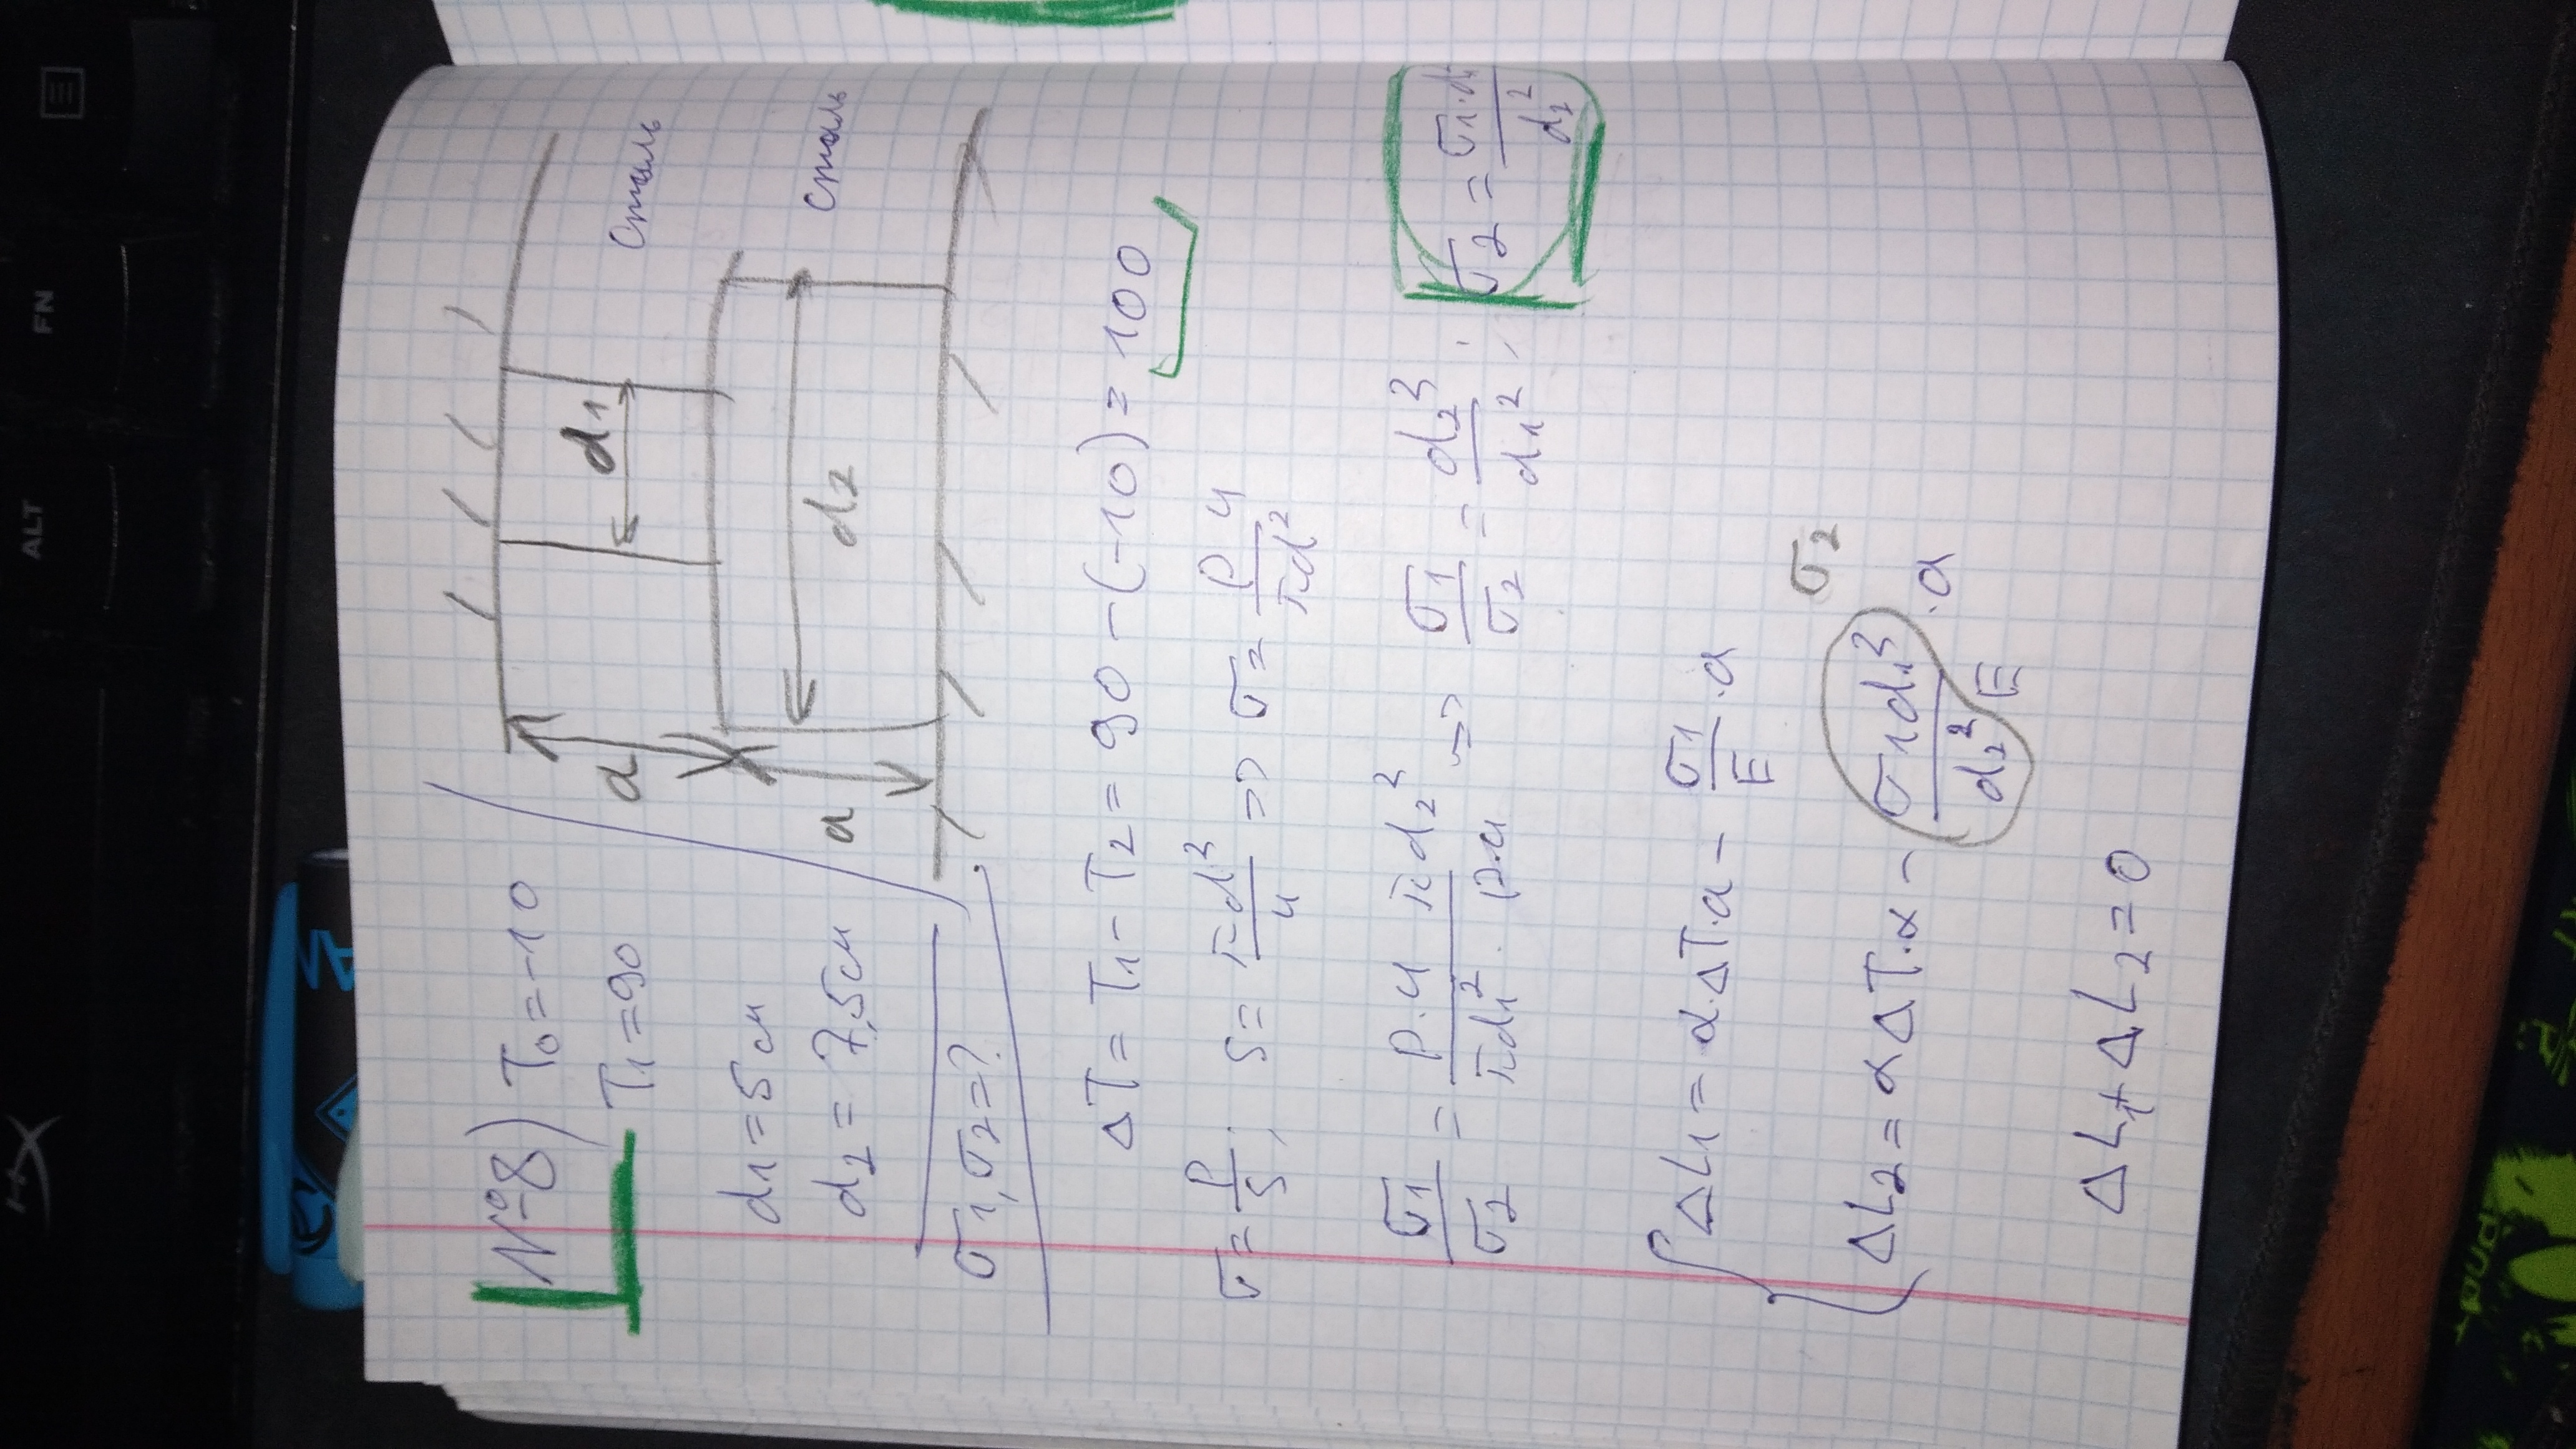 HX
ALT
FN
№8) T₀=-10
T₁=90
d₁=5см
d₂= 7,5см
σ₁,σ₂=?
a
d₁
Сталь
a
d₂
Сталь
ΔT= T₁-T₂= 90-(-10)= 100
σ=P/S; S= πd²/4 => σ= P 4/πd²
σ₁/σ₂ = P·4 πd₂²/πd₁² · P·4 => σ₁/σ₂ = d₂²/d₁² ; σ₂ = σ₁·d₁/d₂²
ΔL₁= α·ΔT·a - σ₁/E ·a
σ₂
ΔL₂= αΔT·α - σ₁d₁²/d₂² E ·a
ΔL₁+ΔL₂=0